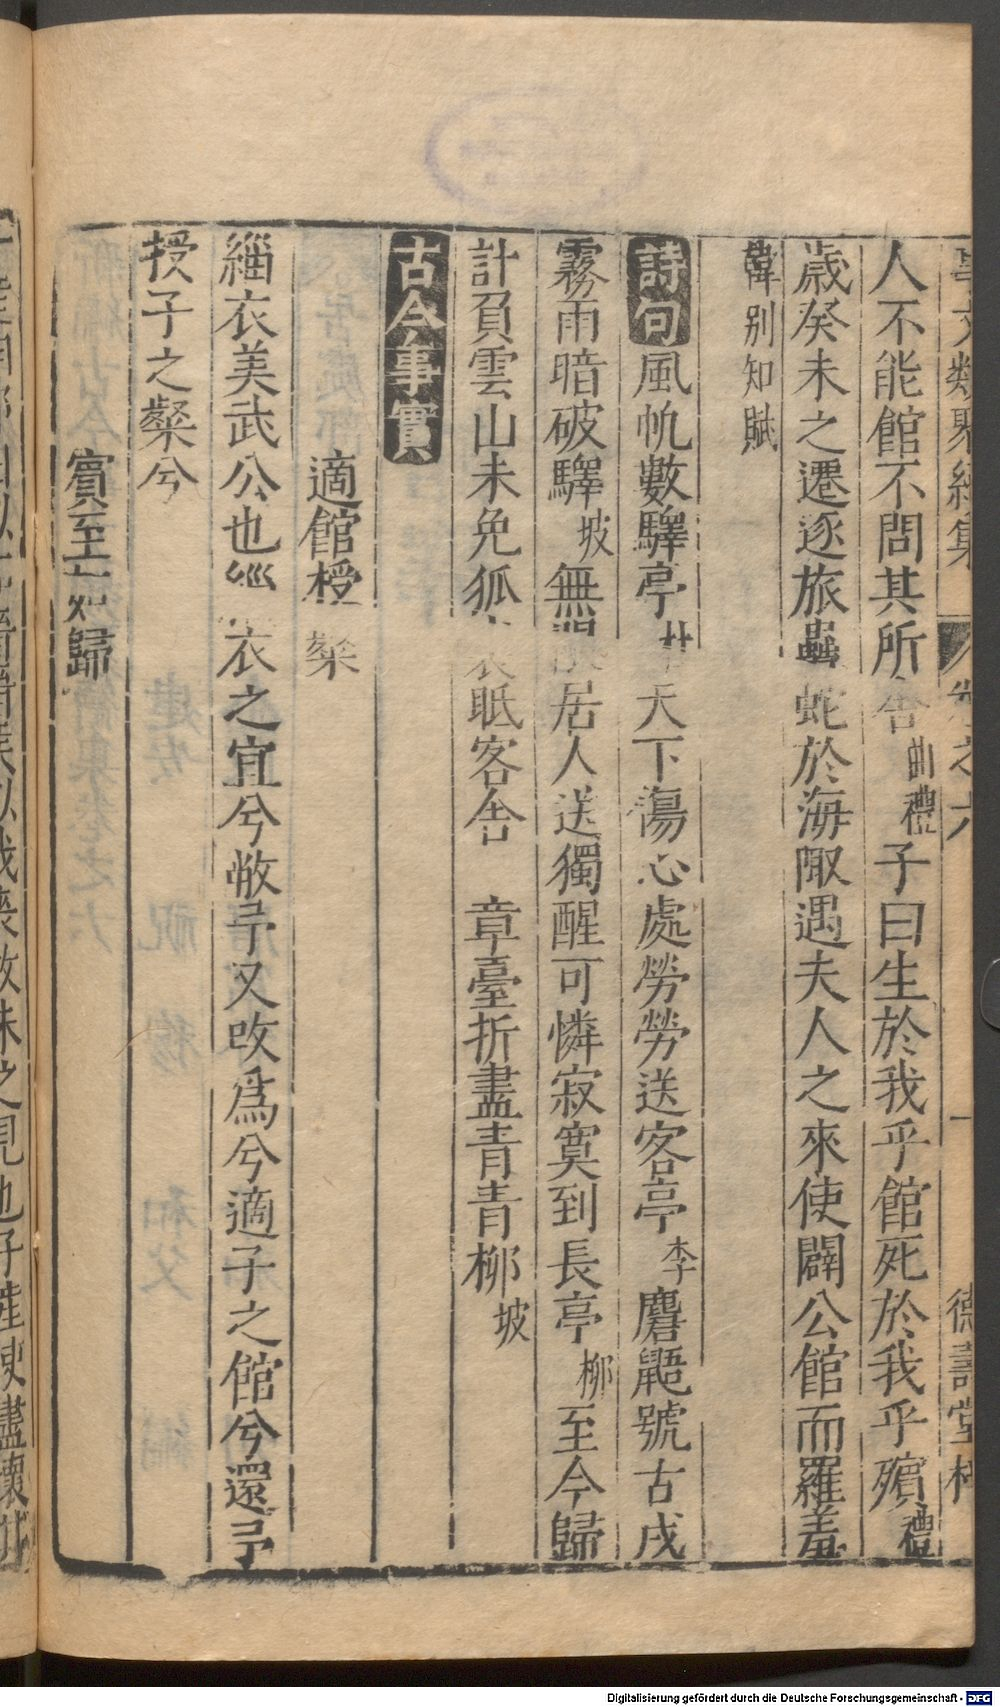 事文類聚續集 卷之六 一 德壽堂梓
人不能館不問其所舍曲禮子曰生於我乎館死於我乎殯禮
歲癸未之遷逐旅蟲蛇於海陬遇夫人之來使闢公館而羅羞
韓別知賦
詩句風帆數驛亭 天下傷心處勞勞送客亭李麏鼯號古戍
霧雨暗破驛坡無 居人送獨醒可憐寂寞到長亭柳至今歸
計負雲山未免狐 衣眠客舍 章臺折盡青青柳坡
古今事實
適館授粲
緇衣美武公也緇衣之宜兮敝予又改爲兮適子之館兮還予
授子之粲兮
賓至如歸
Digitalisierung gefördert durch die Deutsche Forschungsgemeinschaft - DFG